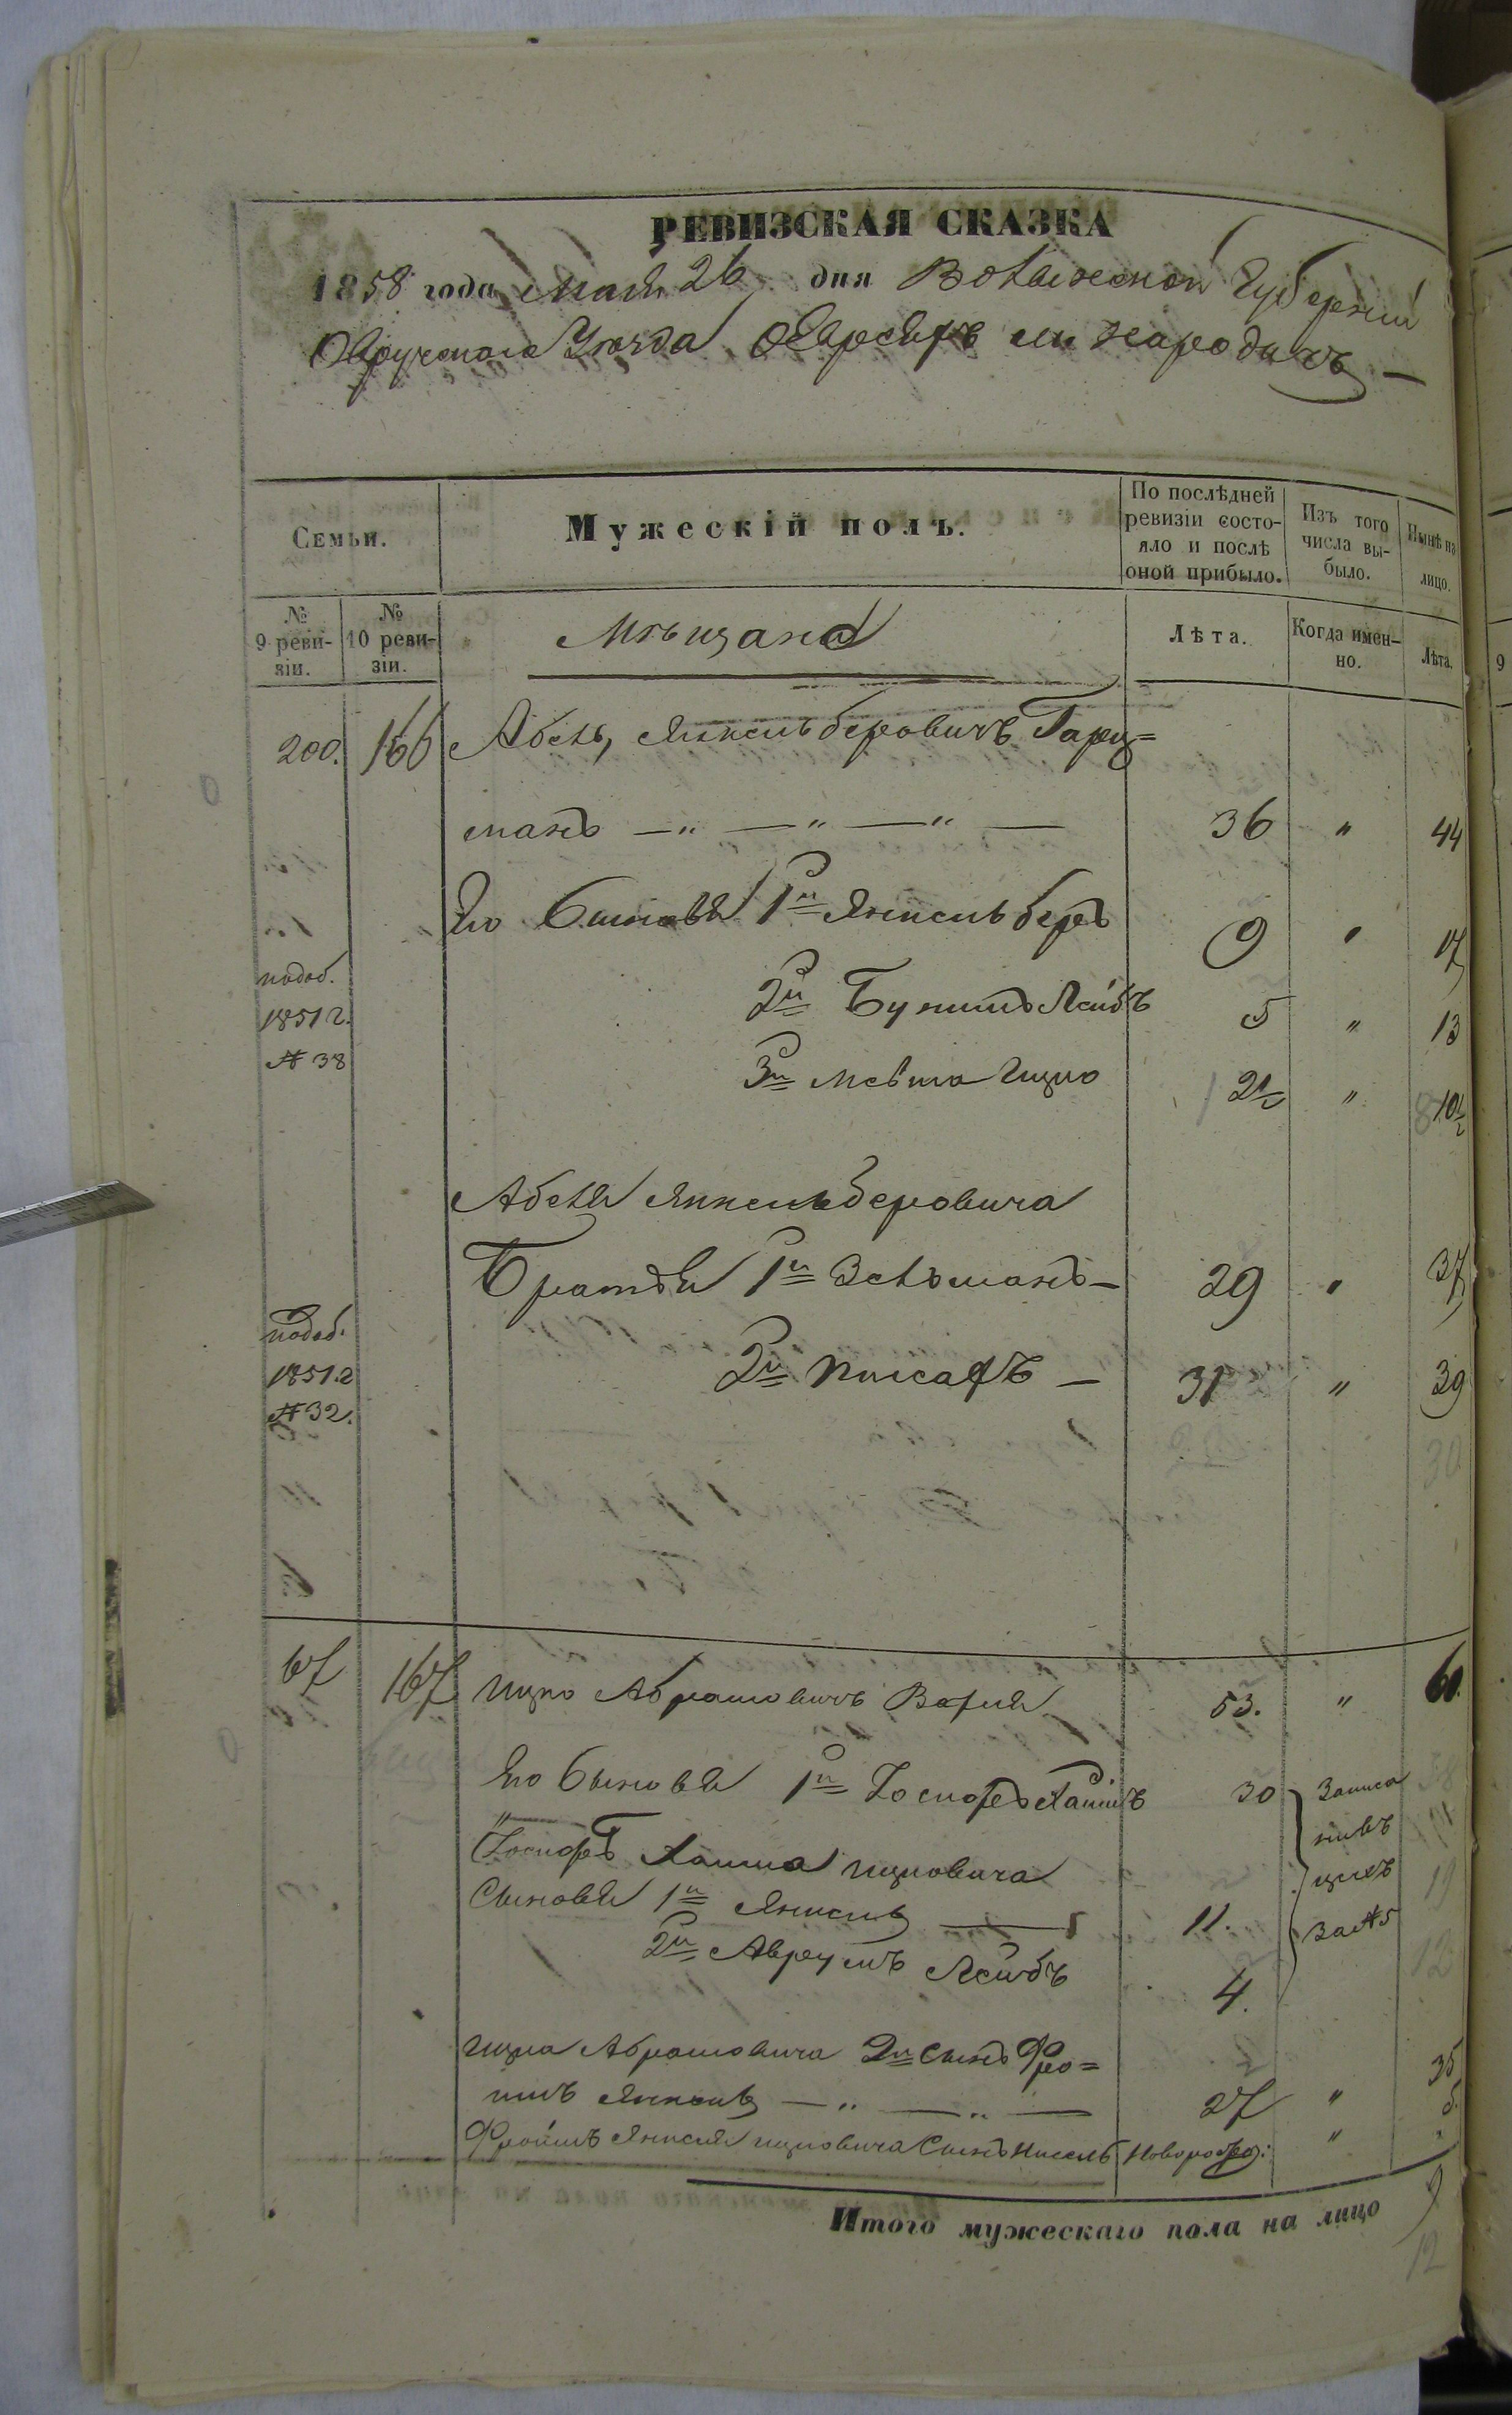 РЕВИЗСКАЯ СКАЗКА
1858 года Мая 26 дня Волынской Губерніи
Овручскаго Уѣзда о Евреяхъ м: Народичъ —
Семьи.
Мужескій полъ.
По послѣдней ревизіи состояло и послѣ оной прибыло.
Изъ того числа выбыло.
Нынѣ на лицо.
№ 9 ревизіи.
№ 10 ревизіи.
Мѣщане
Лѣта.
Когда именно.
Лѣта.
200. 166 Абель Янкельберовичъ Гарц=
манъ — „ — „ — „ — 36 „ 44
Его Сыновья 1й Янкель беръ 9 „ 17
подоб. 1851 г. № 38
2й Бунимъ Лейбъ 5 „ 13
3й Ицко 2½ „ 10½
Абеля Янкельберовича
Братья 1й Зельманъ — 29 „ 37
подоб. 1851 г № 32.
2й — 31 „ 39
67 167 Ицко Абрамовичъ 53. „ 60.
Его Сыновья 1й Іосифъ Хаимъ 30 Записа
Іосифъ Хаима Ицковича
Сыновья 1й Янкель — 11.
2й Аврумъ Лейбъ 4.
за № 5
Ицка Абрамовича 2й Сынъ Фро=
имъ Янкель — „ — „ — 27 „ 35
Фроимъ Янкеля Ицковича Сынъ Нисель Новорожд: „ 5
Итого мужескаго пола на лицо 9
12